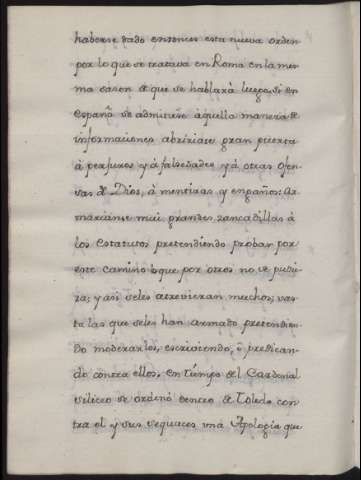 haberse dado entonces esta nueva orden
por lo que se trataua en Roma en la mes
ma sason de que se hablarà luego, Si en
españa se admitiese aquella manera de
informaciones abririase gran puerta
à perjuros y à falsedades y à otras ofen
sas de Dios, à mentiras y engaños: Ar
marianse mui grandes zancadillas à
los estatutos pretendiendo probar por
este camino lo que por otros no se pudie
ra; y asi se les atrevieran muchos; vas
te las que se les han armado pretendien
do moderarlos, escriviendo, ò predican
do contra ellos, en tiempo del Cardenal
Siliceo se ordenò dentro de Toledo con
tra el y sus sequaces una Apologia que